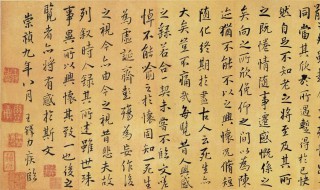 同當其欣於所遇暫得於己快
然自足不知老之將至及其所
之既倦情隨事遷感慨係之
矣向之所欣俛仰之間為陳
迹猶不能不以之興懷況脩短
隨化終期於盡古人云死生亦
大矣豈不痛哉每覽昔人興感
之由若合一契未嘗不臨文嗟
悼不能喻之於懷固知一死生
為虛誕齊彭殤為妄作後
之視今亦由今之視昔悲夫故
列敘時人錄其所述雖世殊
事異所以興懷其致一也後之
覽者亦將有感於斯文
崇禎九年八月 王鐸力疾臨